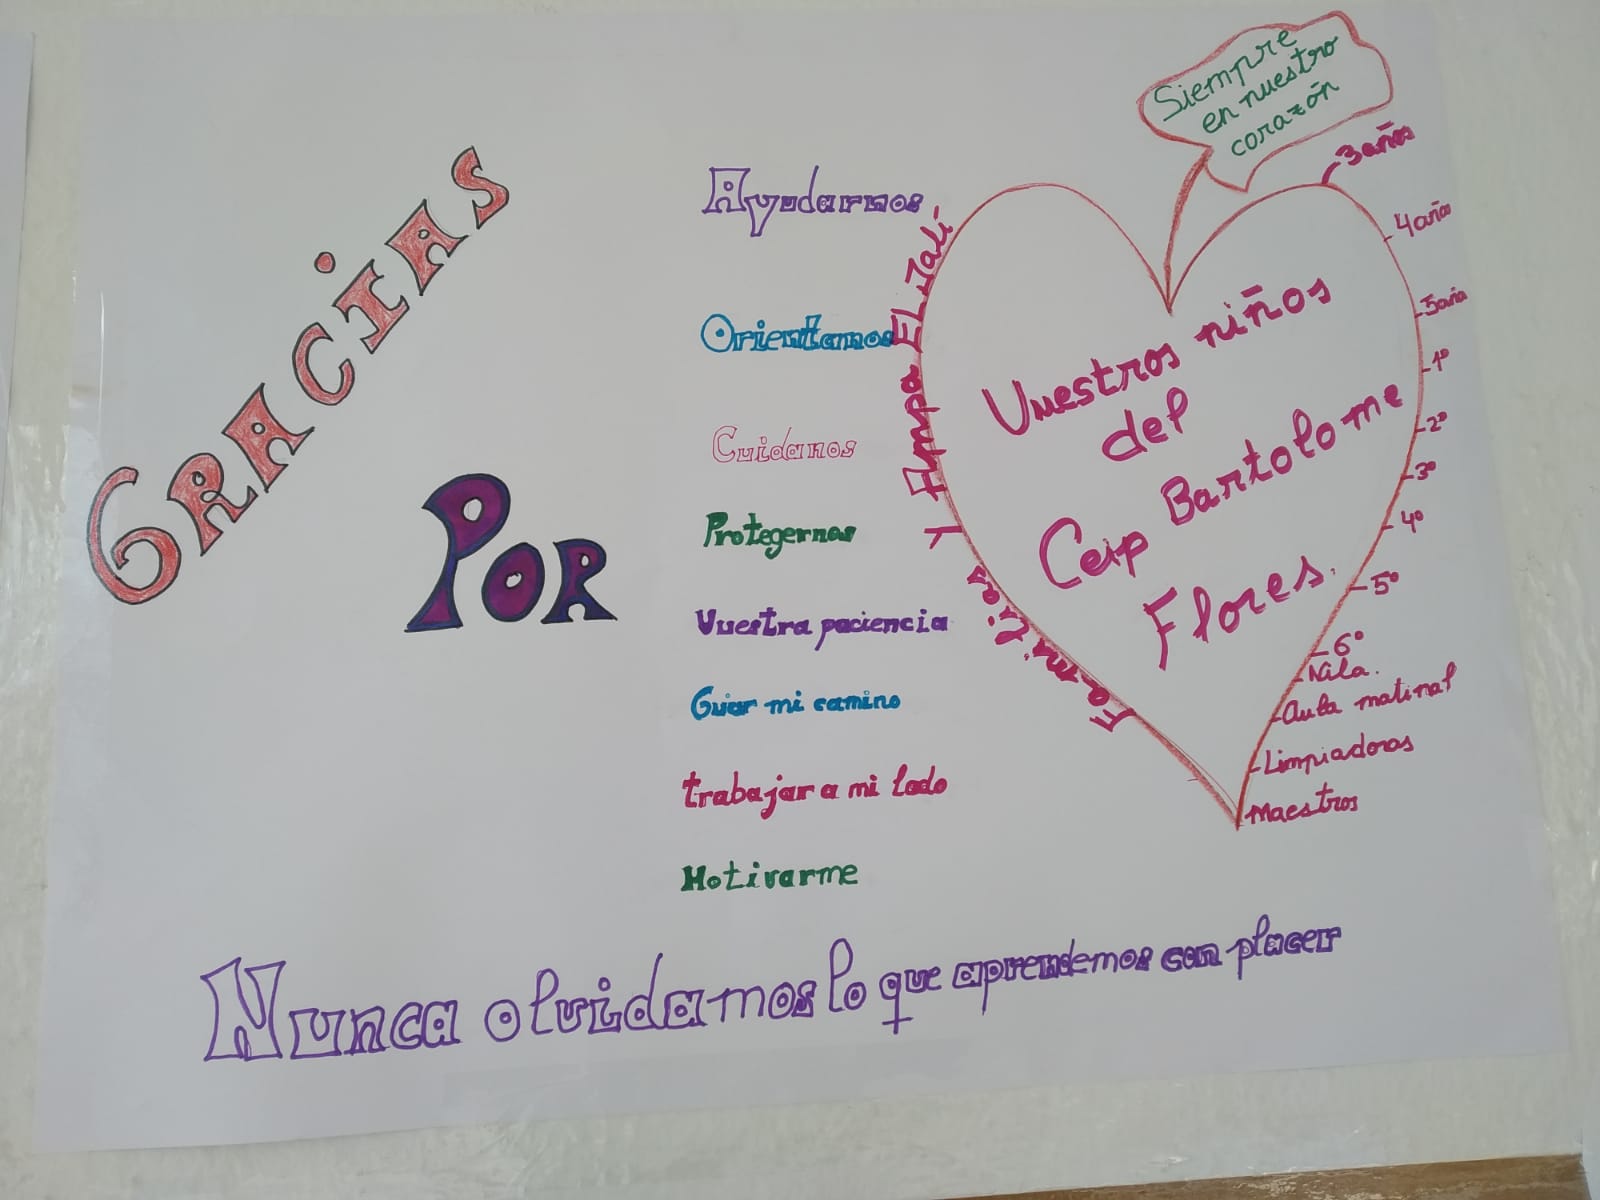 GRACIAS
POR
Ayudarnos
Orientarnos
Cuidanos
Protegernos
Vuestra paciencia
Guiar mi camino
trabajar a mi lado
Motivarme
Siempre
en nuestro
corazón
Vuestros niños
del
Ceip Bartolome
Flores.
Familias Y Ampa EL Jali
3 años
4 años
5 años
1º
2º
3º
4º
5º
6º
Nila.
Aula matinal
Limpiadoras
Maestros
Nunca olvidamos lo que aprendemos con placer